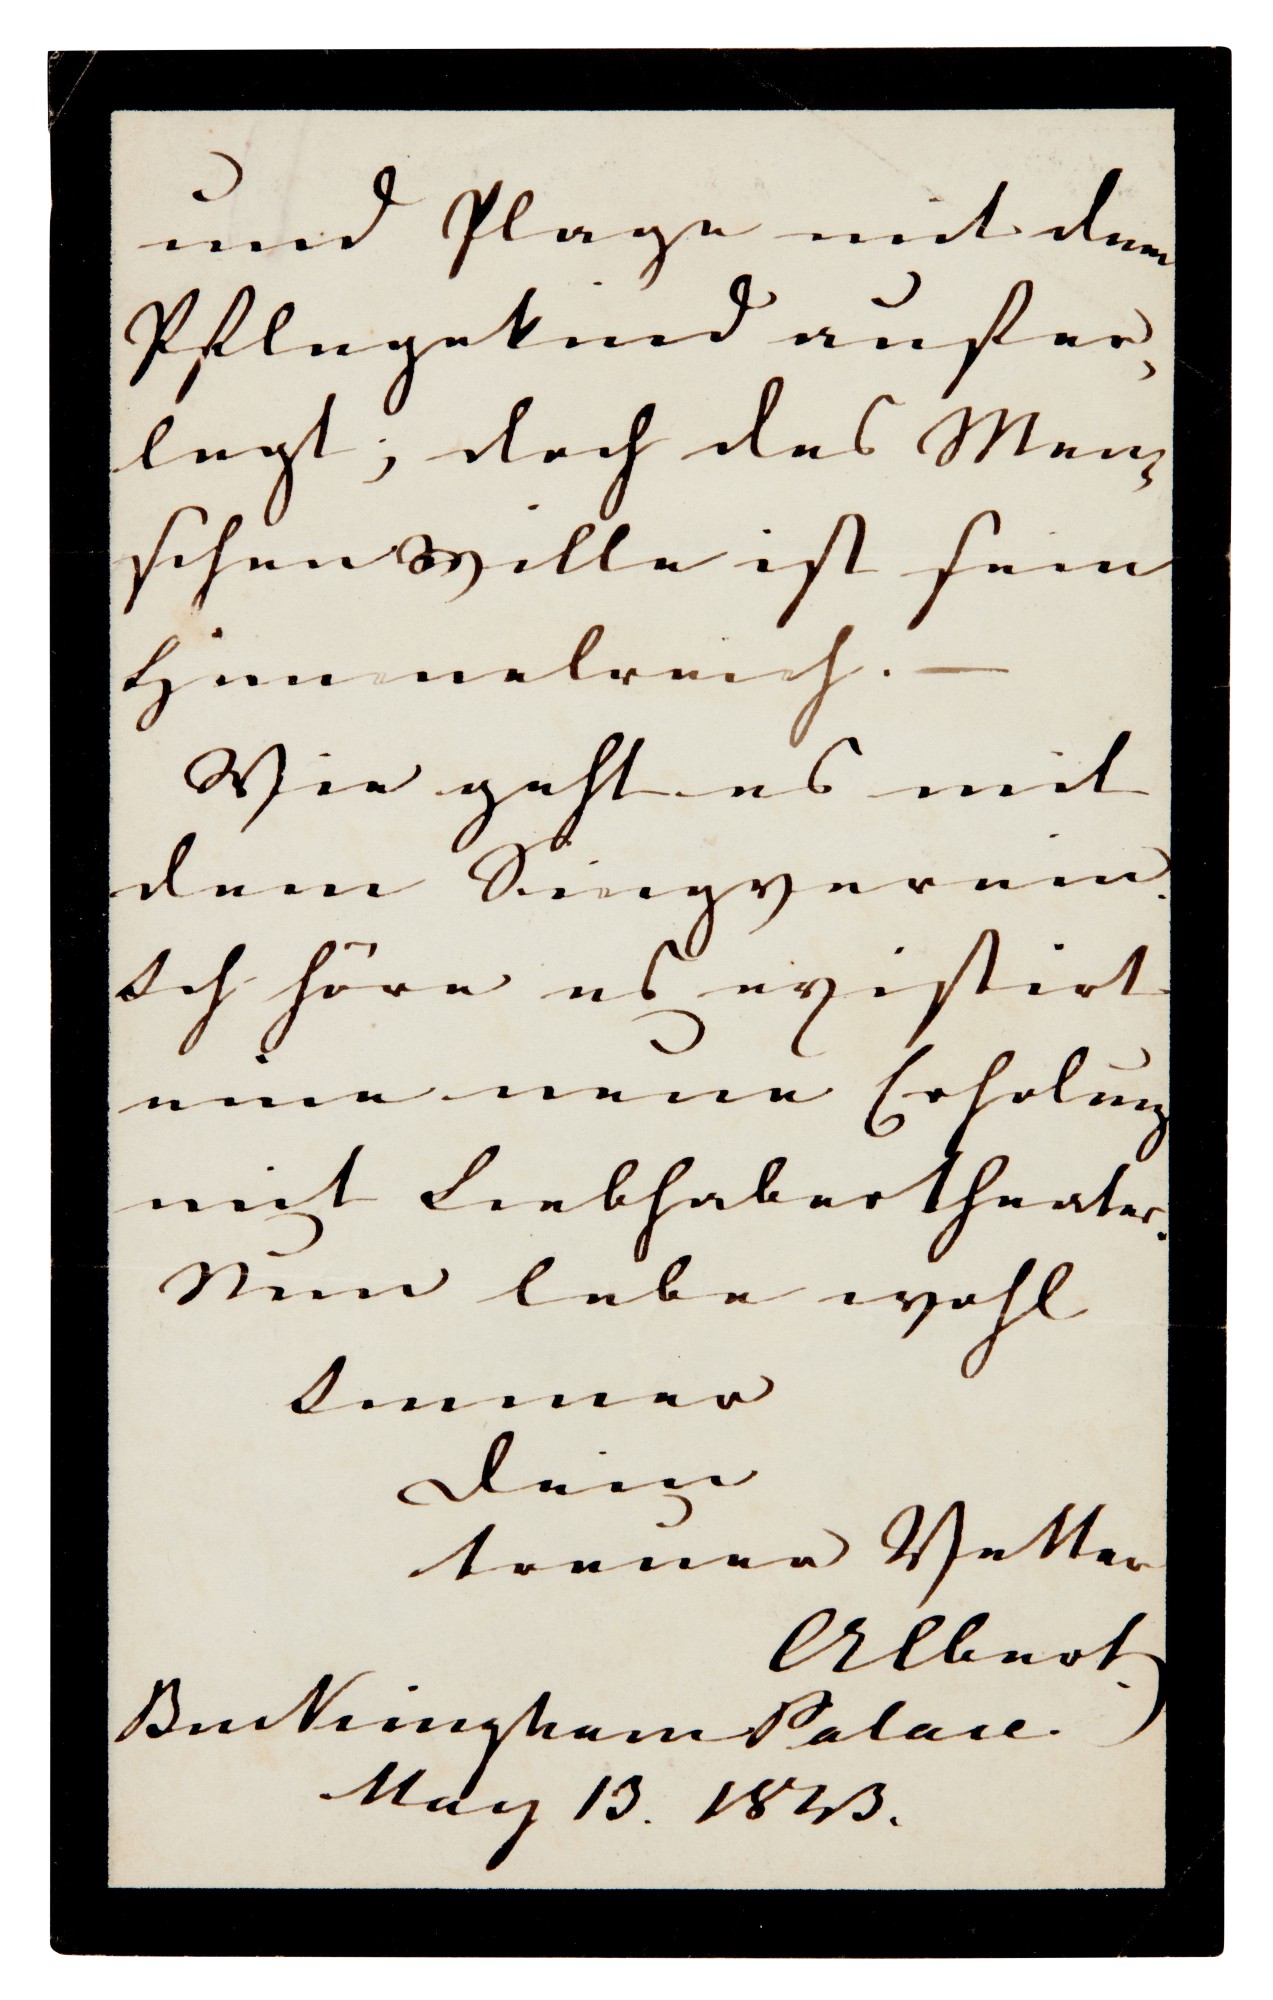 und Plage mit dem
Pflegekind aufer„
legt; doch des Men„
schen Wille ist sein
Himmelreich. —
Wie geht es mit
dem Singverein.
Ich höre es existirt
eine neue Erholung
mit Liebhabertheater.
Nun lebe wohl
Immer
Dein
treuer Vetter
Albert.
Buckingham Palace.
May 13. 1843.